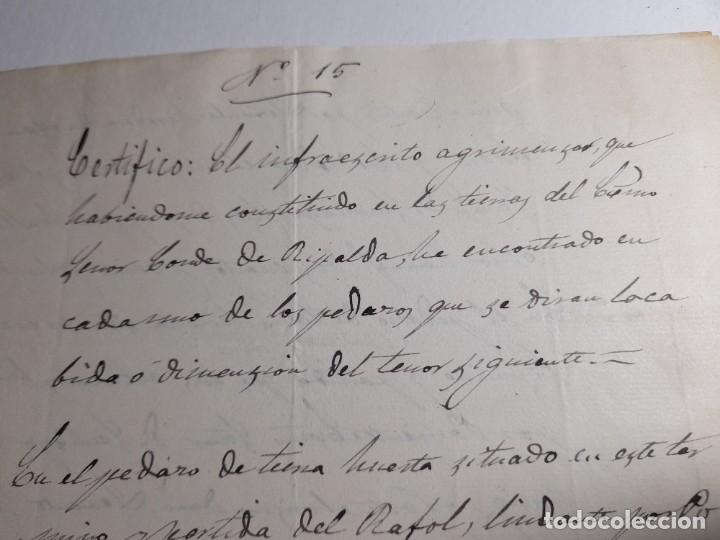 Nº 15
Certifico: El infraescrito agrimenzor, que
habiendome constituido en las tierras del Exmo
Zenor Conde de Ripalda, he encontrado en
cada uno de los pedazos que se diran la ca
bida ó dimenzion del tenor ziguiente.—
En el pedazo de tierra huerta zituado en este ter
mino y partida del Rafol, lindante por
todocoleccion
todocoleccion.net